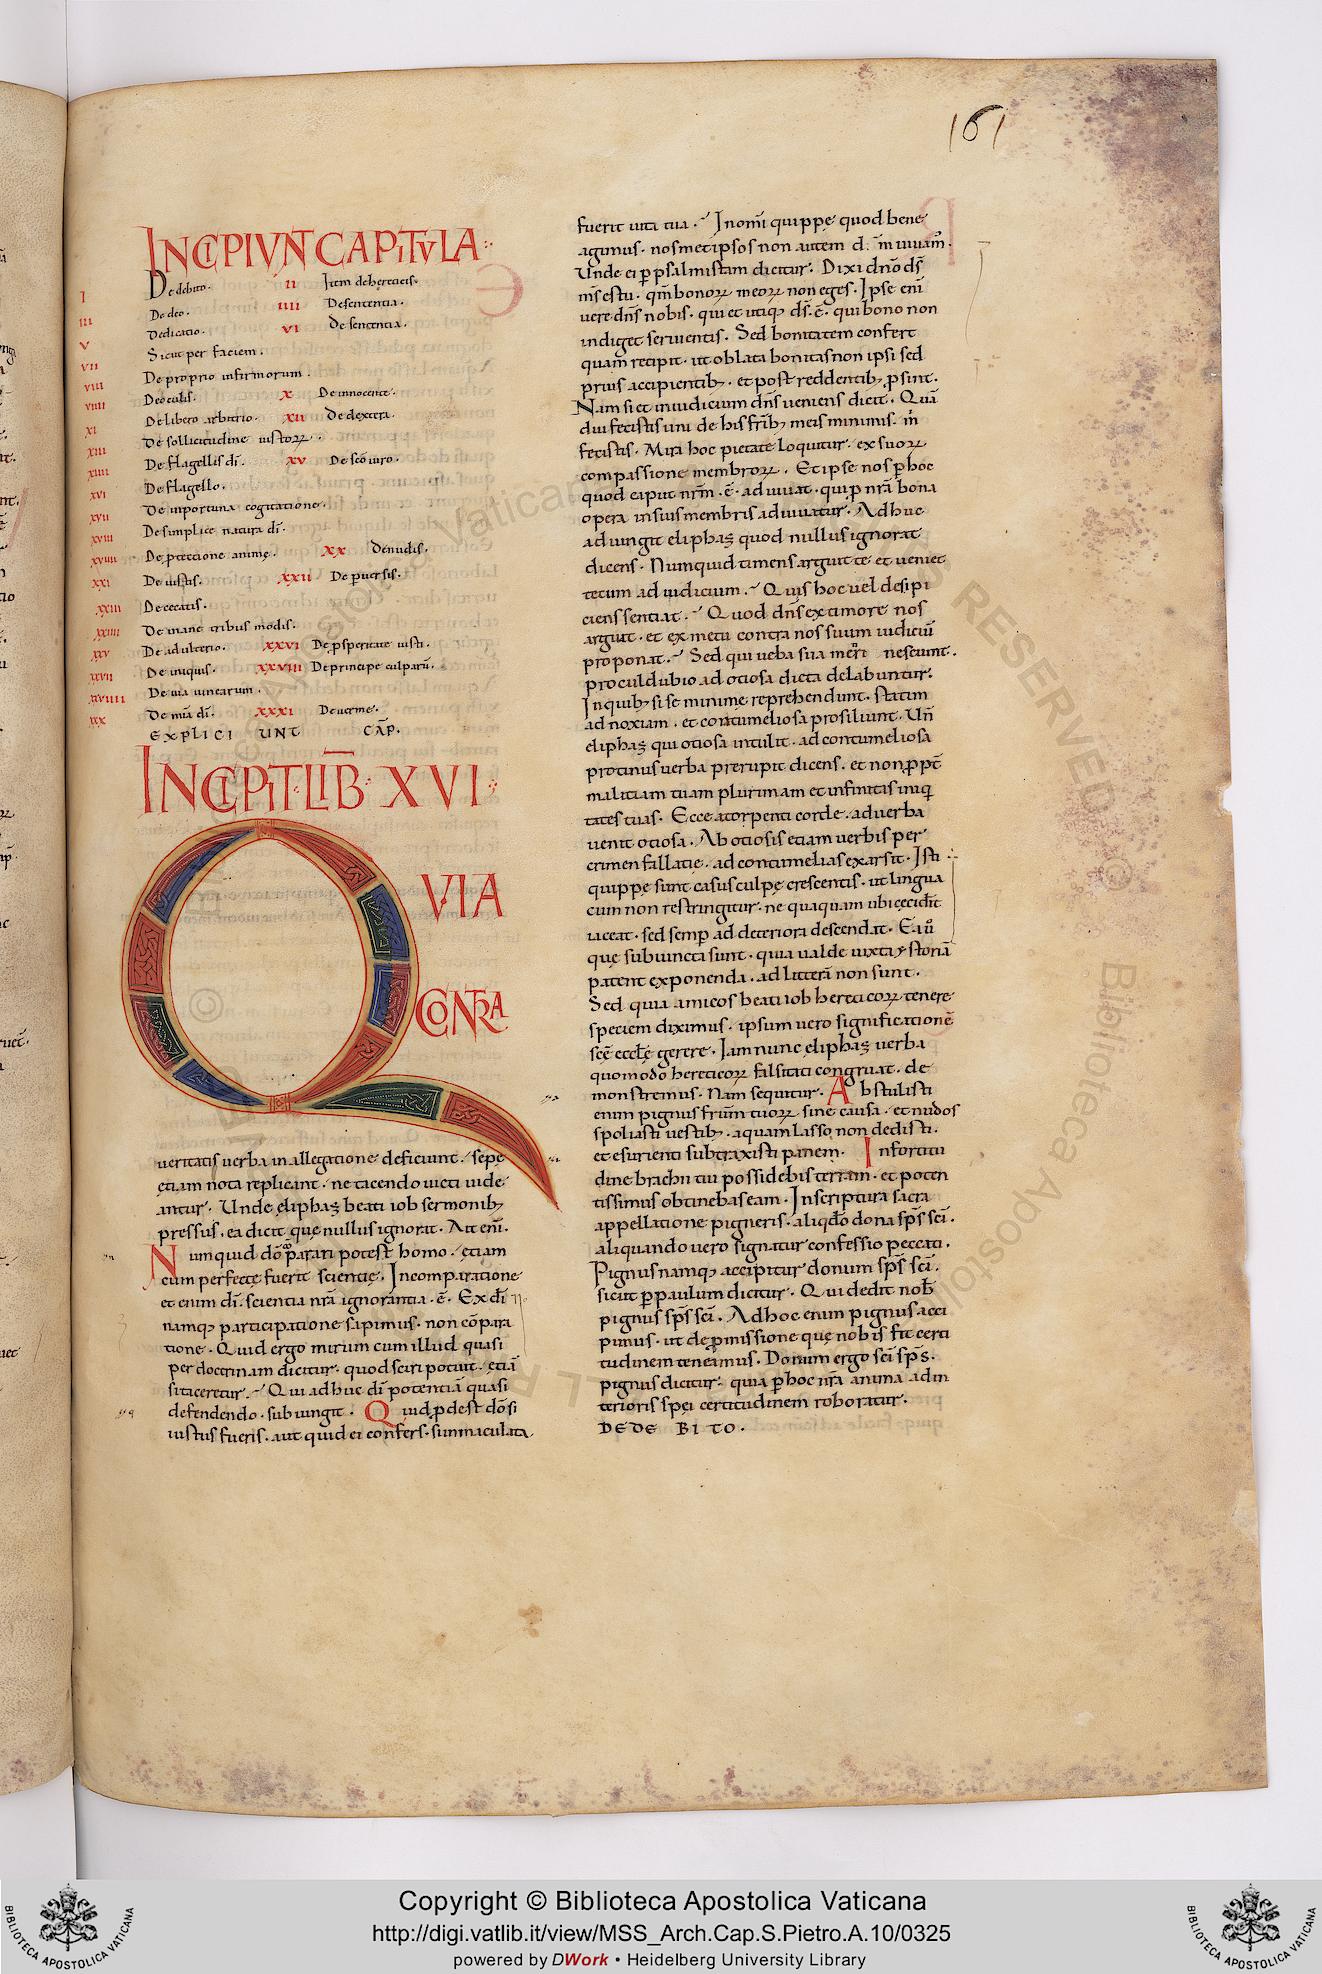 161
INCIPIVNT CAPITVLA
I De debito. II Item de hereticis.
III De deo. IIII De sententia.
V Dedicatio. VI De sententia.
VII Sicut per faciem.
VIII De proprio infirmorum.
VIIII De oculis. X De innocente.
XI De libero arbitrio. XII De dextera.
XIII De sollicitudine iustoꝝ.
XIIII De flagellis dī. XV De sc̄o uiro.
XVI De flagello.
XVII De inportuna cogitatione.
XVIII De simplice natura dī.
XVIIII De ꝓtectione animę. XX De nudis.
XXI De iustis. XXII De ꝑuersis.
XXIII De cecatis.
XXIIII De mane tribus modis.
XXV De adulterio. XXVI De ꝓsperitate iusti.
XXVII De iniquis. XXVIII De principe culparū.
XXVIIII De uia uinearum.
XXX De mīa dī. XXXI De uerme.
EXPLICIUNT CAP̄.
INCIPIT LIB̄ XVI
QVIA
CONTRA
ueritatis uerba in allegatione deficiunt. sępe
etiam nota replicant. ne tacendo uicti uide
antur. Unde eliphaz beati iob sermonibꝫ
pressus, ea dicit quę nullus ignorat. Ait eni̅.
Numquid dō comparari potest homo. etiam
cum perfecte fuerit scientię. Incomparatione
et enim dī. scientia nr̄a ignorantia .ē. Ex dī
namqꝫ participatione sapimus. non cōpara
tione. Quid ergo mirum cum illud quasi
per doctrinam dicitur. quod sciri potuit. etiā
si taceretur. Qui adhuc dī potentiā quasi
defendendo. subiungit. Quid ꝓdest dō si
iustus fueris. aut quid ei confers. si inmaculata
fuerit uita tua. In om̄i quippę quod bene
agimus. nosmetipsos non autem d̄m iuuam᾽.
Unde ei ꝑ psalmistam dicitur. Dixi dn̄o ds̄
ms̄ es tu. qm̄ bonoꝝ meoꝝ non eges. Ipse eni̅
uere dn̄s nobis. qui et utiqꝫ ds̄ .ē. qui bono non
indiget seruientis. Sed bonitatem confert
quam recipit. ut oblata bonitas non ipsi sed
prius accipientibꝫ. et post reddentibꝫ ꝓsint.
Nam si et in iudicium dn̄s ueniens dicit. Quā
diu fecistis uni de his fr̄ibꝫ meis minimis. m̄
fecistis. Mira hoc pietate loquitur. ex suoꝝ
compassione membroꝝ. Et ipse nos ꝑ hoc
quod caput nr̄m .ē. adiuuat. qui ꝑ nr̄a bona
opera in suis membris adiuuatur. Adhuc
adiungit eliphaz quod nullus ignorat
dicens. Numquid timens arguit te et ueniet
tecum ad iudicium. Quis hoc uel desipi
ciens sentiat. Quod dn̄s ex timore nos
arguit. et ex metu contra nos suum iudiciū
proponat. Sed qui uerba sua metiri nesciunt.
proculdubio ad otiosa dicta delabuntur.
In quibꝫ si se minime reprehendunt. statim
ad noxiam. et contumeliosa prosiliunt. Un̄
eliphaz qui otiosa intulit. ad contumeliosa
protinus uerba prerupit dicens. et non ꝓpt̄
malitiam tuam plurimam et infinitas iniq
tates tuas. Ecce a torpenti corde. ad uerba
uenit otiosa. Ab otiosis etiam uerbis per
crimen fallacię. ad contumelias exarsit. Isti
quippę sunt casus culpę crescentis. ut lingua
cum non restringitur. ne quaquam ubi cecidit
iaceat. sed semꝑ ad deteriora descendat. Ea u̅
quę subiuncta sunt. quia ualde iuxta ystoriā
patent exponenda. ad litterā non sunt.
Sed quia amicos beati iob hereticoꝝ tenere
speciem diximus. ipsum uero significationē
scę̄ eccl̄ę gerere. Iam nunc eliphaz uerba
quomodo hereticoꝝ falsitati congruat. de
monstremus. Nam sequitur. Abstulisti
enim pignus fr̄um tuoꝝ sine causa. et nudos
spoliasti uestibꝫ. aquam lasso non dedisti.
et esurienti subtraxisti panem. In fortitu
dine brachii tui possidebis terram. et poten
tissimus obtinebas eam. In scriptura sacra
appellatione pigneris. aliqdō dona sp̄s sc̄i.
aliquando uero signatur confessio peccati.
Pignus namqꝫ accipitur donum sp̄s sc̄i.
sicut ꝑ paulum dicitur. Qui dedit nob̄
pignus sp̄s sc̄i. Ad hoc enim pignus acci
pimus. ut de ꝓmissione quę nobis fit certi
tudinem teneamus. Donum ergo sc̄i sp̄s.
pignus dicitur. quia ꝑ hoc nr̄a anima ad in
terioris spei certitudinem roboratur.
DE DEBITO.
Copyright © Biblioteca Apostolica Vaticana
http://digi.vatlib.it/view/MSS_Arch.Cap.S.Pietro.A.10/0325
powered by DWork • Heidelberg University Library